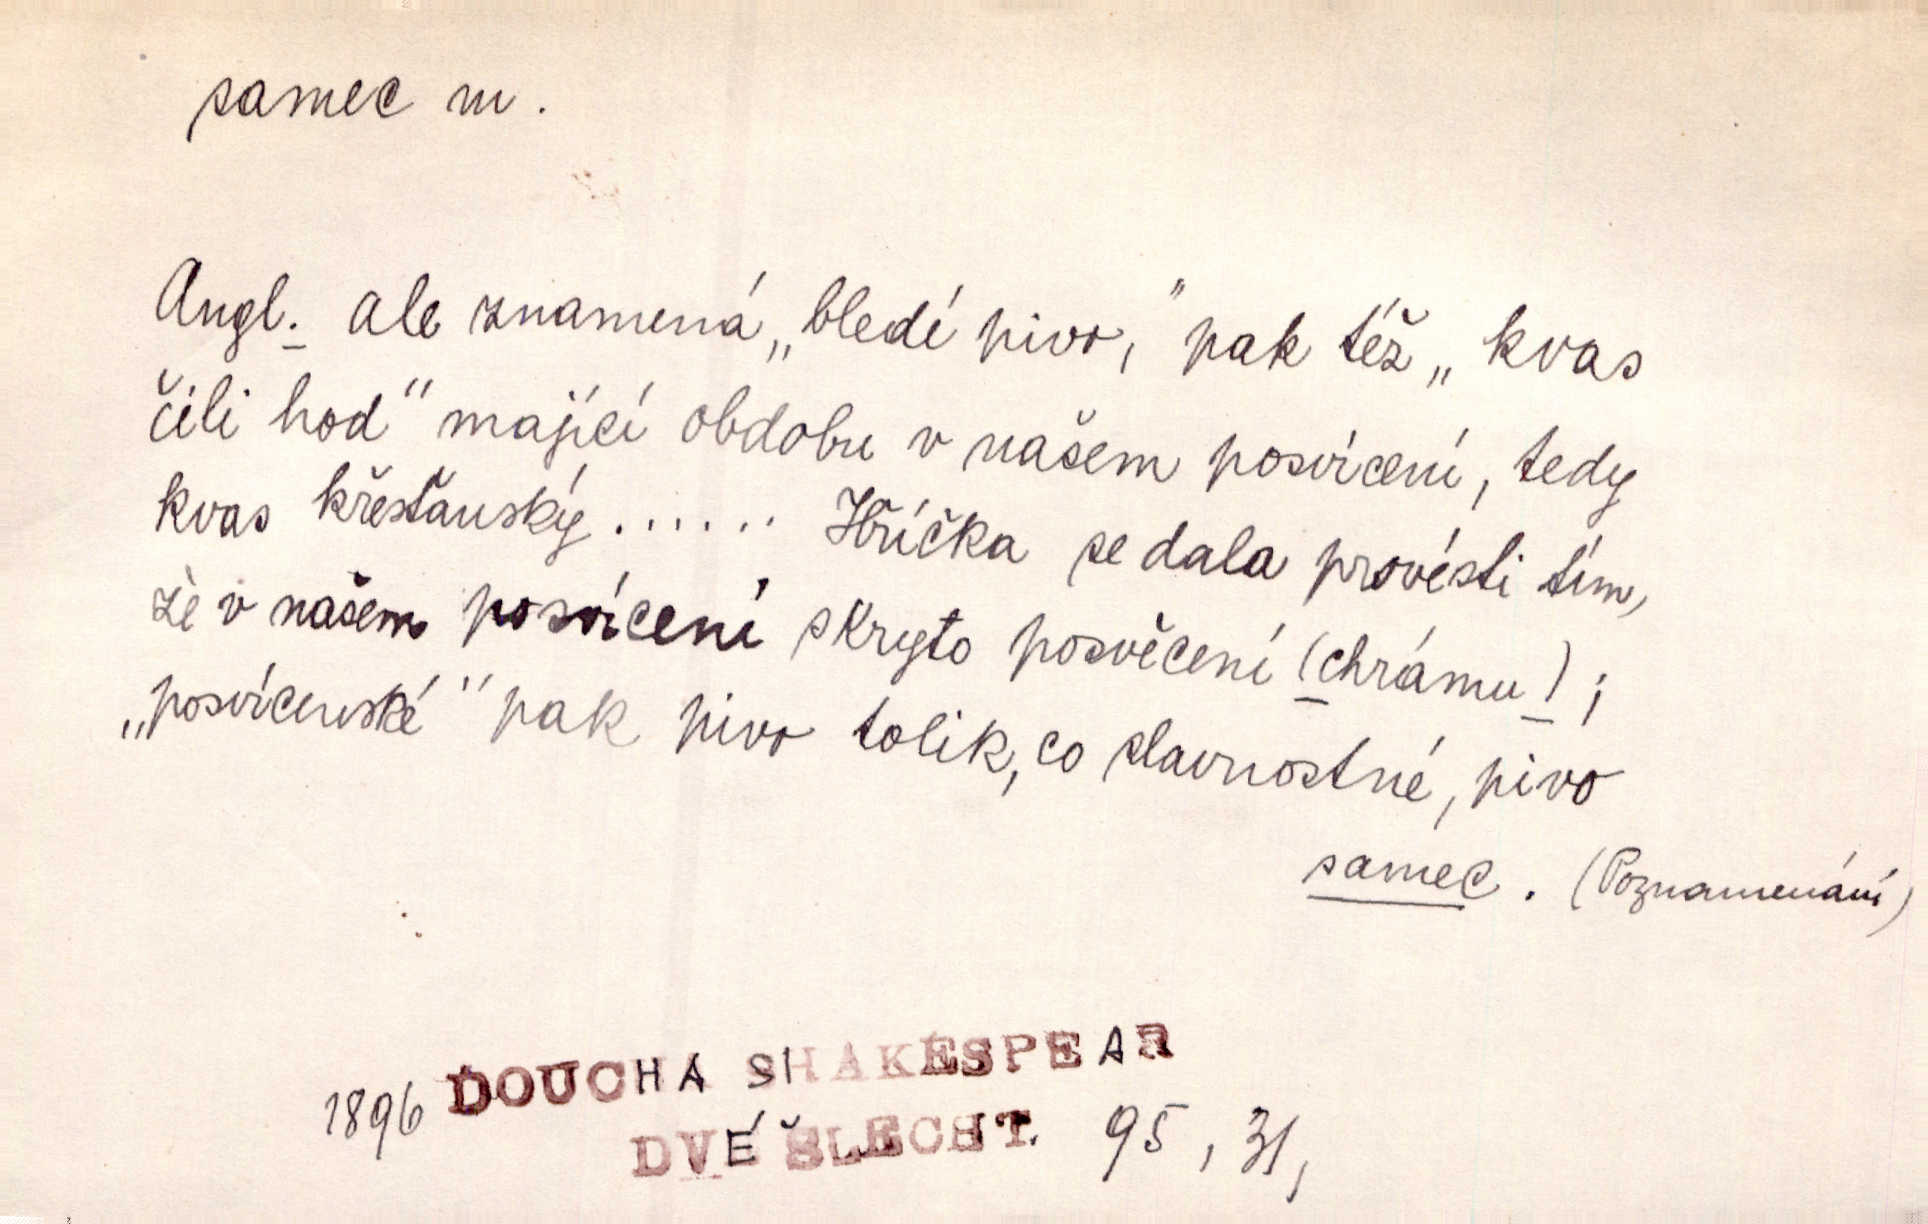 samec m.
Angl. ale znamená „bledé pivo," pak též „kvas
čili hod" mající obdobu v našem posvícení, tedy
kvas křesťanský ...... Hříčka se dala provésti tím,
že v našem posvícení skryto posvěcení (chrámu);
„posvícenské" pak pivo tolik, co slavnostné, pivo
samec. (Poznamenání)
1896 DOUCHA SHAKESPEAR
DVÉ ŠLECHT. 95, 31,